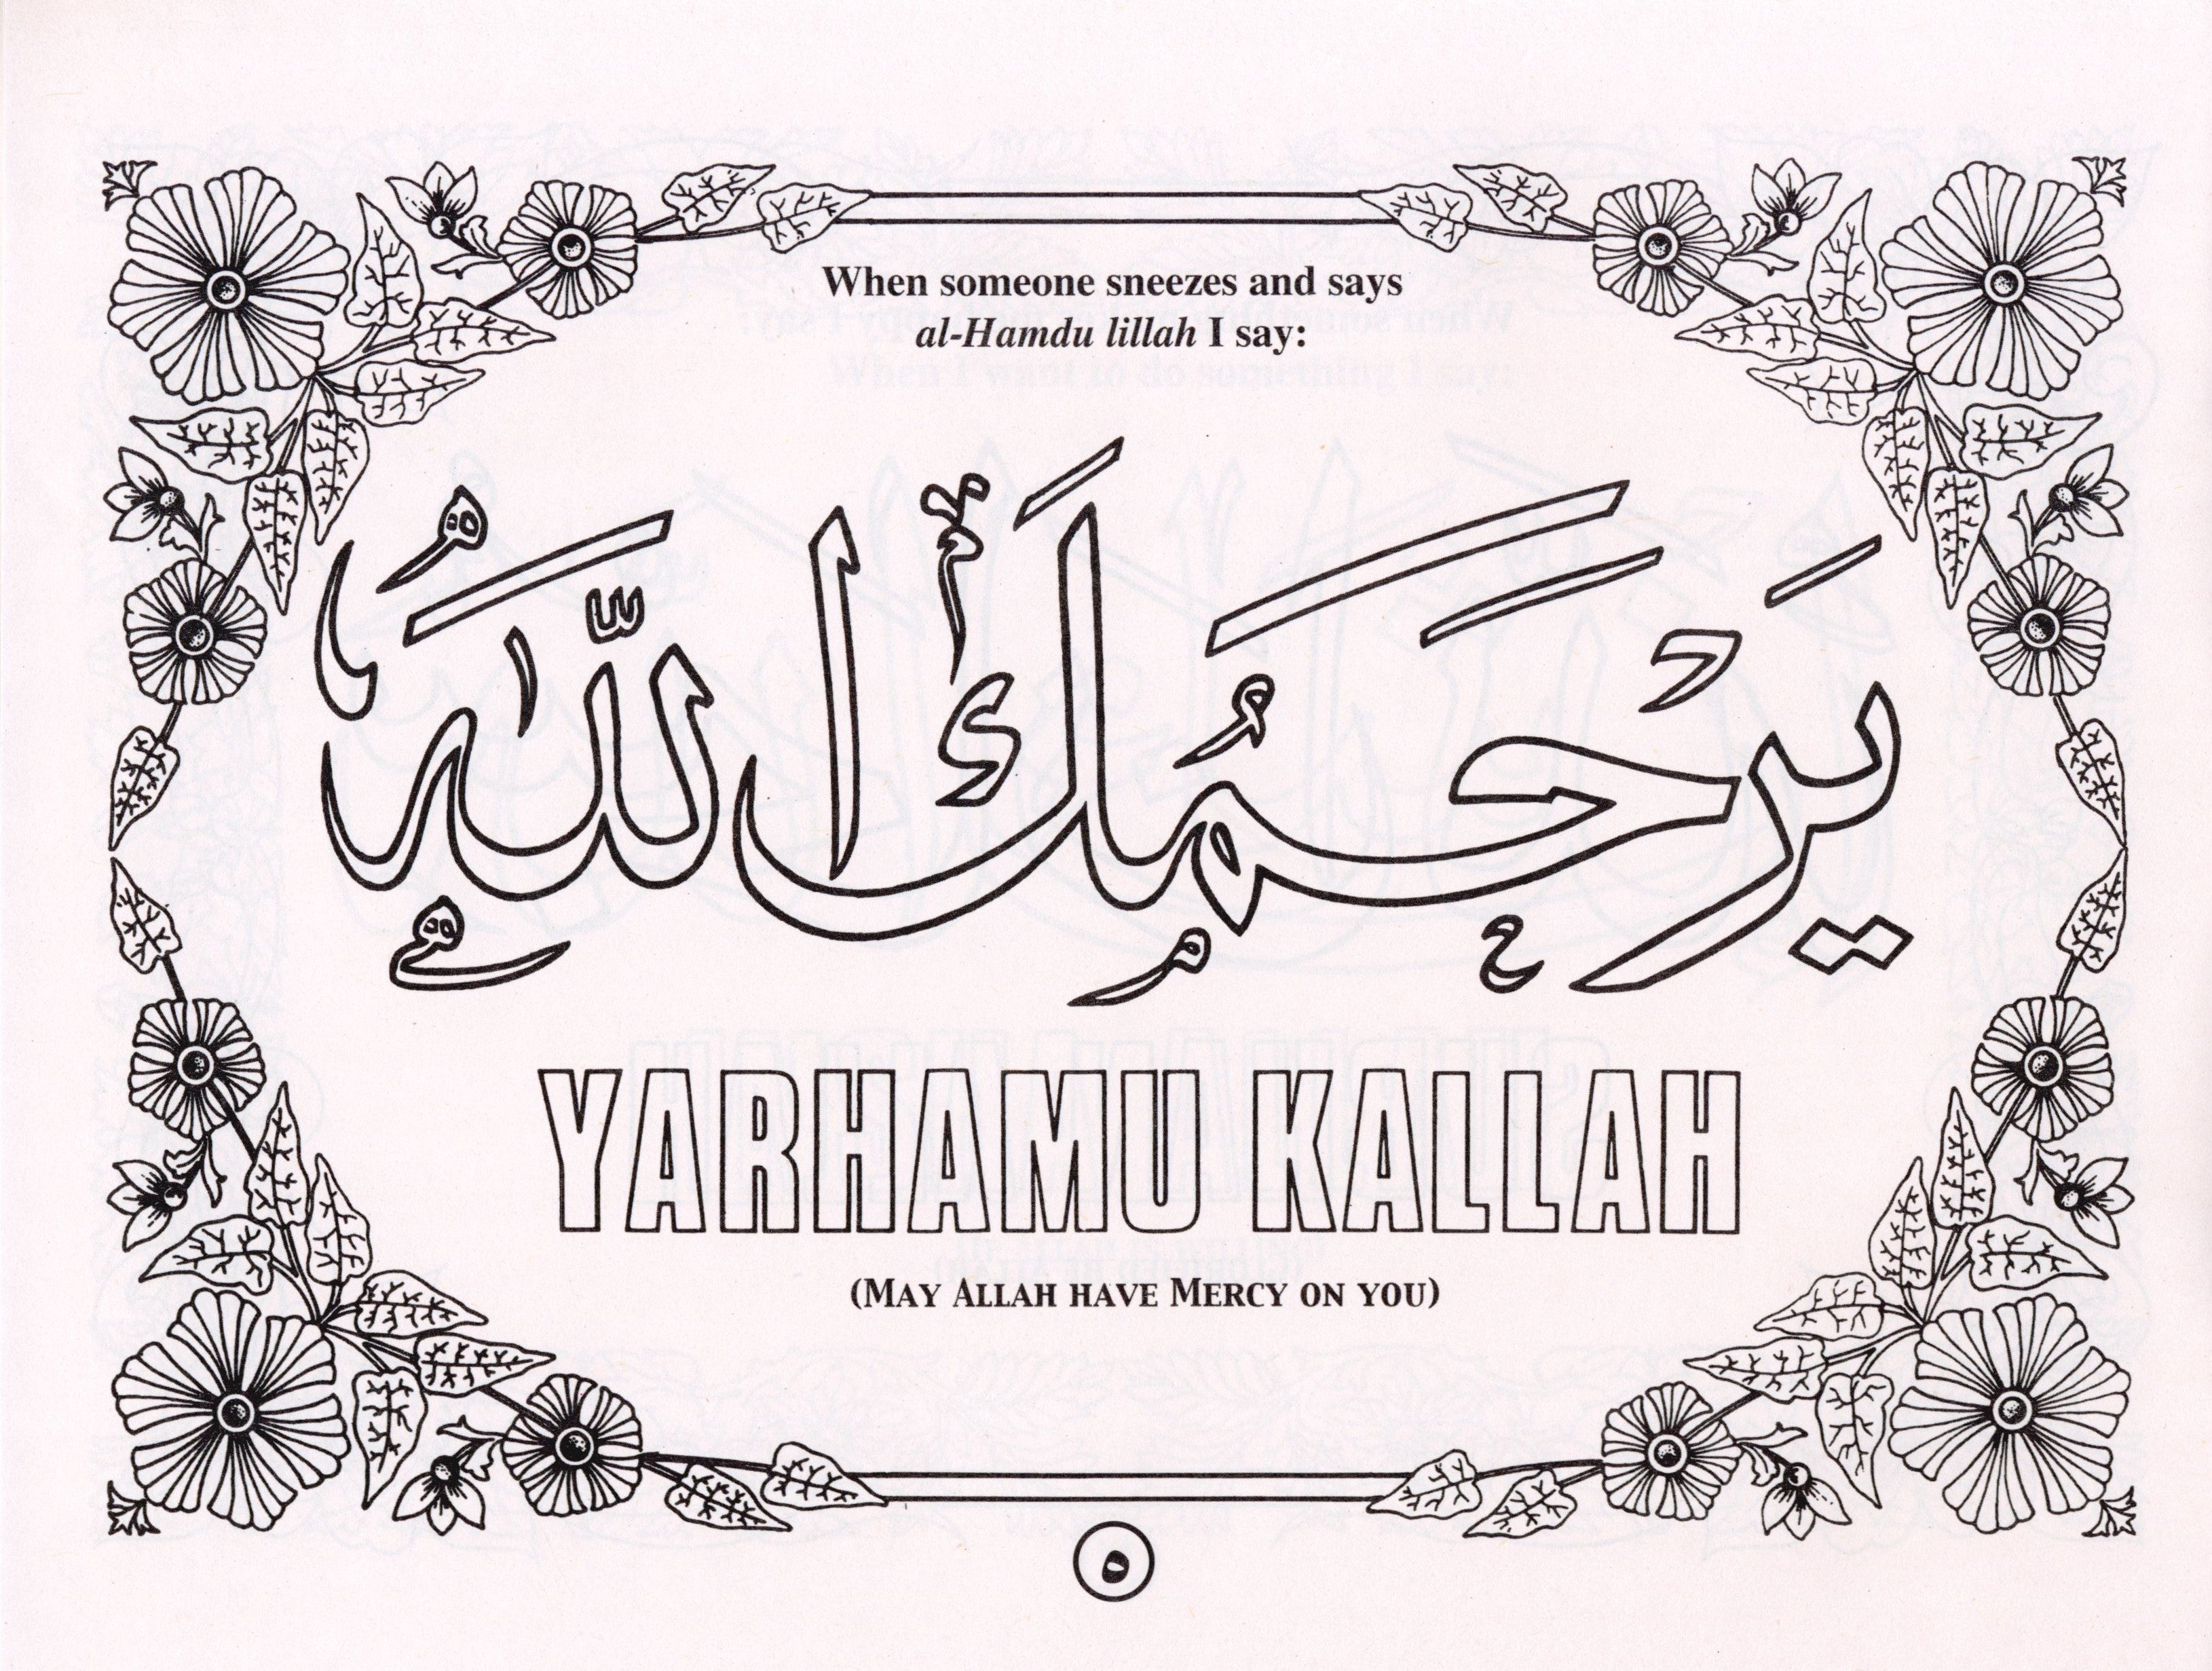 When someone sneezes and says
al-Hamdu lillah I say:
يَرْحَمُكَ اللَّهُ
YARHAMU KALLAH
(MAY ALLAH HAVE MERCY ON YOU)
٥